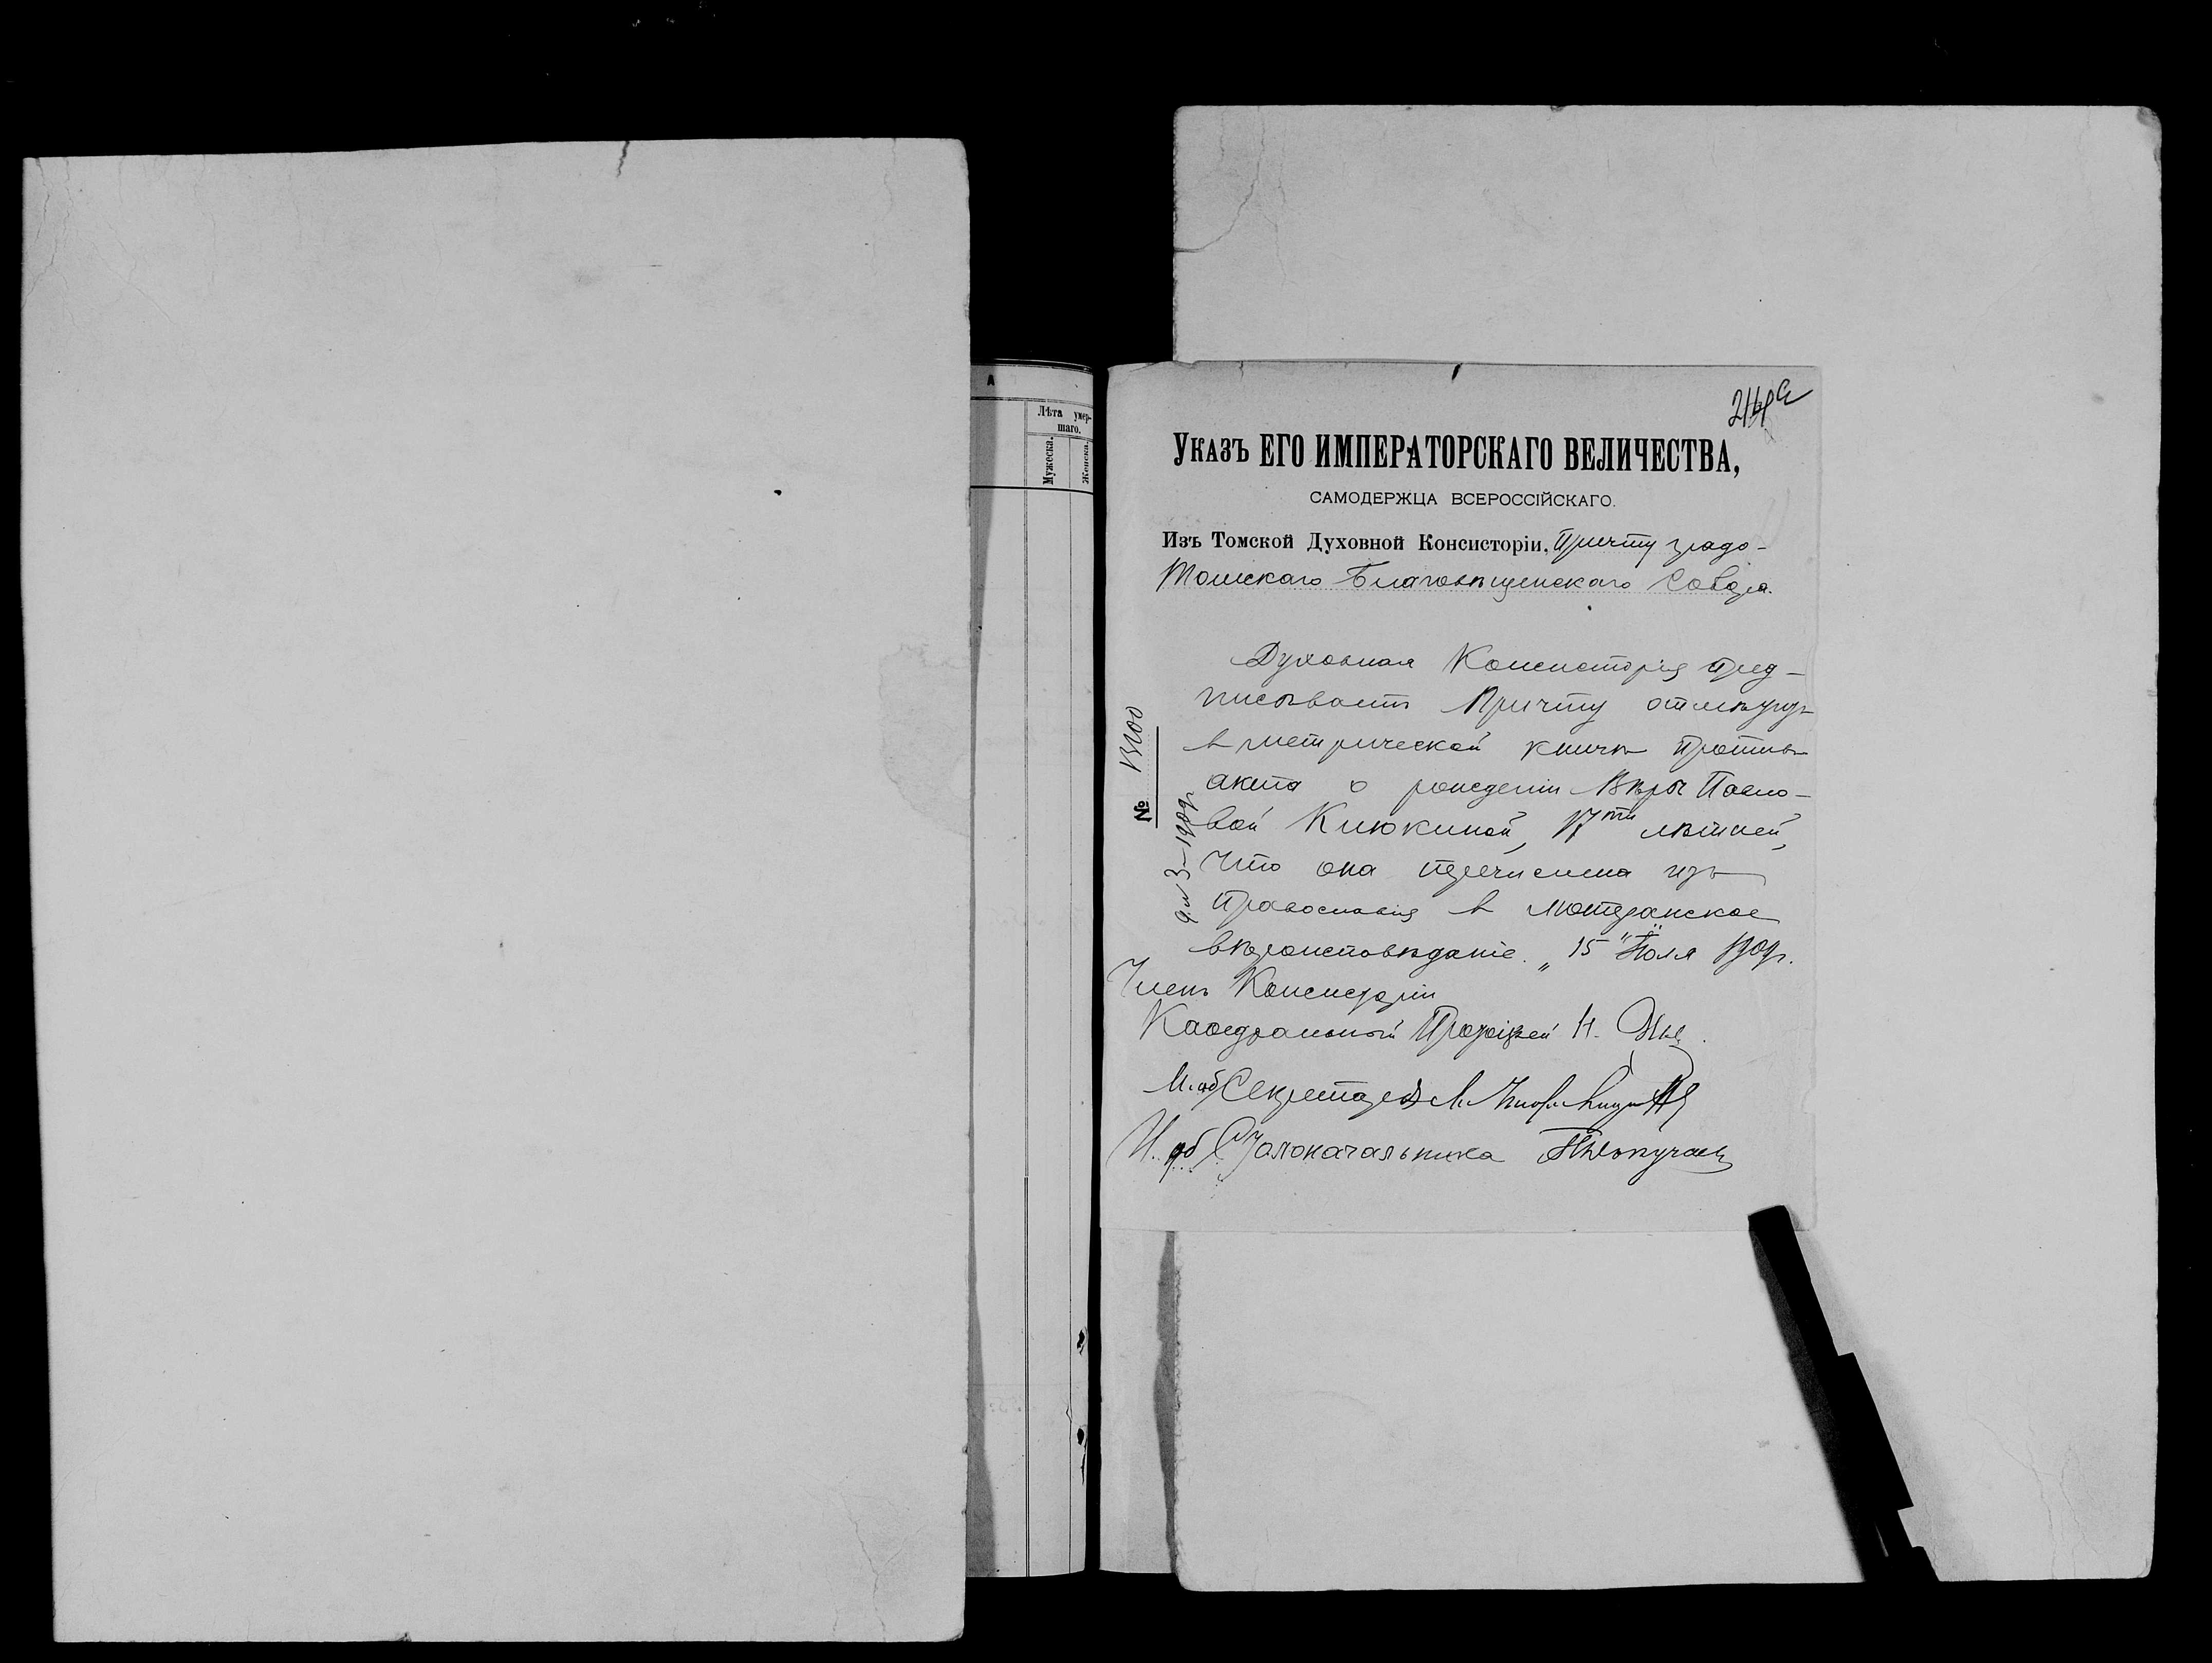 А
Лѣта умер-
шаго.
Мужеска.
Женска.
УКАЗЪ ЕГО ИМПЕРАТОРСКАГО ВЕЛИЧЕСТВА,
САМОДЕРЖЦА ВСЕРОССІЙСКАГО.
Изъ Томской Духовной Консисторіи, Причту градо-
Томскаго Благовѣщенскаго Собора.
Духовная Консисторія пред-
писываетъ Причту
въ метрической книгѣ противъ
акта о рожденіи Вѣры
вой Кнюкиной, 17ти лѣтней,
что она перечислена изъ
Православія въ лютеранское
вѣроисповѣданіе. „15" Іюля 1909 г.
№
Членъ Консисторіи
Каѳедральный Протоіерей Н.
И. об. Секретаря
И. об. Столоначальника